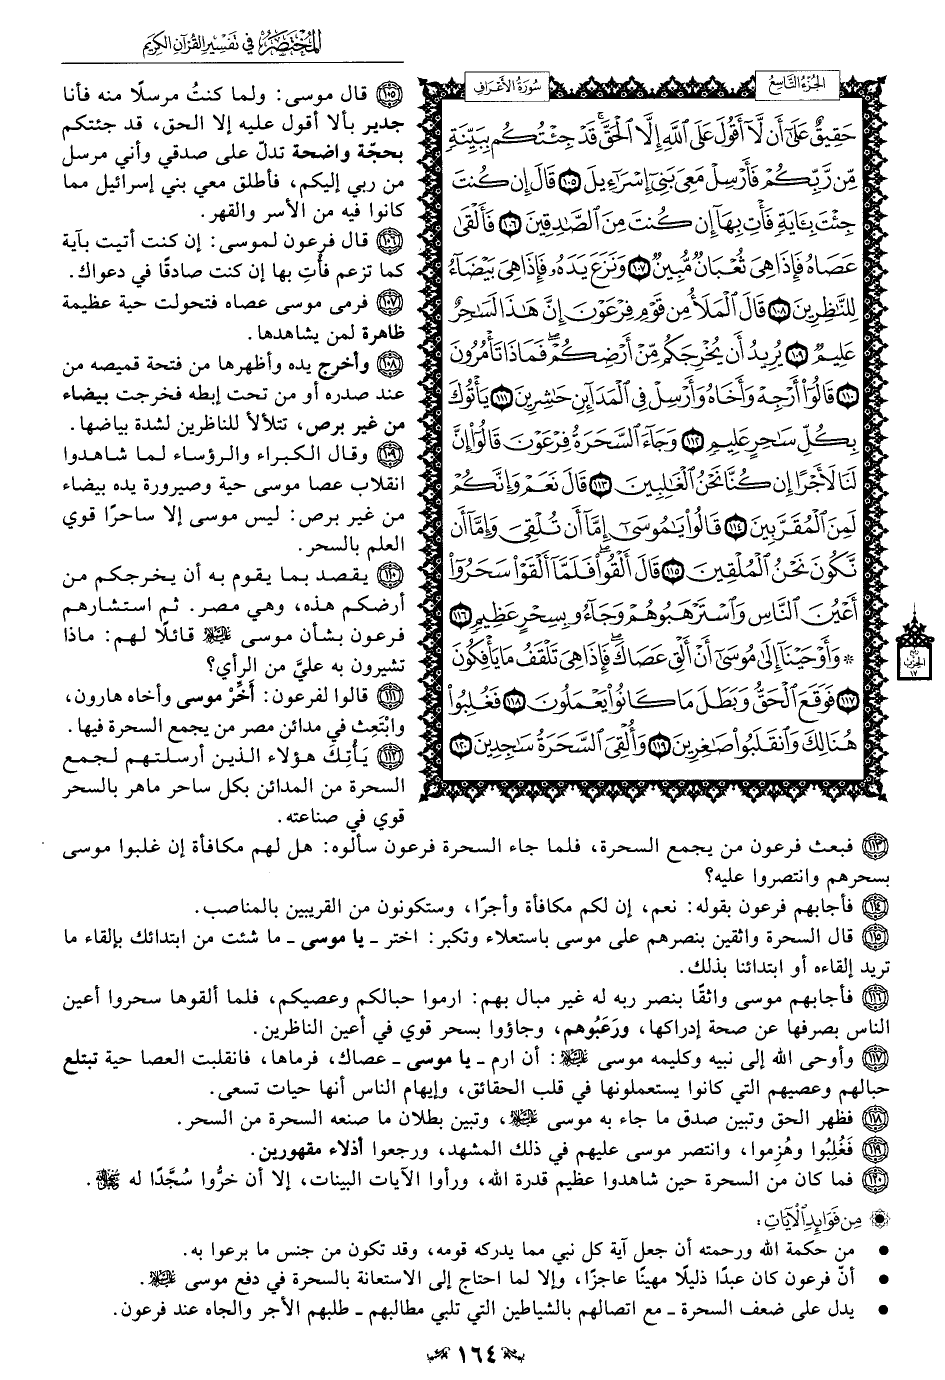 المختصر في تفسير القرآن الكريم
الجزء التاسع
سورة الأعراف
حَقِيقٌ عَلَىٰٓ أَن لَّآ أَقُولَ عَلَى ٱللَّهِ إِلَّا ٱلۡحَقَّۚ قَدۡ جِئۡتُكُم بِبَيِّنَةٖ
مِّن رَّبِّكُمۡ فَأَرۡسِلۡ مَعِيَ بَنِيٓ إِسۡرَٰٓءِيلَ ١٠٥ قَالَ إِن كُنتَ
جِئۡتَ بِـَٔايَةٖ فَأۡتِ بِهَآ إِن كُنتَ مِنَ ٱلصَّٰدِقِينَ ١٠٦ فَأَلۡقَىٰ
عَصَاهُ فَإِذَا هِيَ ثُعۡبَانٞ مُّبِينٞ ١٠٧ وَنَزَعَ يَدَهُۥ فَإِذَا هِيَ بَيۡضَآءُ
لِلنَّٰظِرِينَ ١٠٨ قَالَ ٱلۡمَلَأُ مِن قَوۡمِ فِرۡعَوۡنَ إِنَّ هَٰذَا لَسَٰحِرٌ
عَلِيمٞ ١٠٩ يُرِيدُ أَن يُخۡرِجَكُم مِّنۡ أَرۡضِكُمۡۖ فَمَاذَا تَأۡمُرُونَ
١١٠ قَالُوٓاْ أَرۡجِهۡ وَأَخَاهُ وَأَرۡسِلۡ فِي ٱلۡمَدَآئِنِ حَٰشِرِينَ ١١١ يَأۡتُوكَ
بِكُلِّ سَٰحِرٍ عَلِيمٖ ١١٢ وَجَآءَ ٱلسَّحَرَةُ فِرۡعَوۡنَ قَالُوٓاْ إِنَّ
لَنَا لَأَجۡرًا إِن كُنَّا نَحۡنُ ٱلۡغَٰلِبِينَ ١١٣ قَالَ نَعَمۡ وَإِنَّكُمۡ
لَمِنَ ٱلۡمُقَرَّبِينَ ١١٤ قَالُواْ يَٰمُوسَىٰٓ إِمَّآ أَن تُلۡقِيَ وَإِمَّآ أَن
نَّكُونَ نَحۡنُ ٱلۡمُلۡقِينَ ١١٥ قَالَ أَلۡقُواْۖ فَلَمَّآ أَلۡقَوۡاْ سَحَرُوٓاْ
أَعۡيُنَ ٱلنَّاسِ وَٱسۡتَرۡهَبُوهُمۡ وَجَآءُو بِسِحۡرٍ عَظِيمٖ ١١٦
* وَأَوۡحَيۡنَآ إِلَىٰ مُوسَىٰٓ أَنۡ أَلۡقِ عَصَاكَۖ فَإِذَا هِيَ تَلۡقَفُ مَا يَأۡفِكُونَ
١١٧ فَوَقَعَ ٱلۡحَقُّ وَبَطَلَ مَا كَانُواْ يَعۡمَلُونَ ١١٨ فَغُلِبُواْ
هُنَالِكَ وَٱنقَلَبُواْ صَٰغِرِينَ ١١٩ وَأُلۡقِيَ ٱلسَّحَرَةُ سَٰجِدِينَ ١٢٠
ربع
الحزب
١٧
١٠٥ قال موسى: ولما كنتُ مرسلًا منه فأنا
جدير بألا أقول عليه إلا الحق، قد جئتكم
بحجّة واضحة تدلّ على صدقي وأني مرسل
من ربي إليكم، فأطلق معي بني إسرائيل مما
كانوا فيه من الأسر والقهر.
١٠٦ قال فرعون لموسى: إن كنت أتيت بآية
كما تزعم فأْتِ بها إن كنت صادقًا في دعواك.
١٠٧ فرمى موسى عصاه فتحولت حية عظيمة
ظاهرة لمن يشاهدها.
١٠٨ وأخرج يده وأظهرها من فتحة قميصه من
عند صدره أو من تحت إبطه فخرجت بيضاء
من غير برص، تتلألأ للناظرين لشدة بياضها.
١٠٩ وقال الكبراء والرؤساء لما شاهدوا
انقلاب عصا موسى حية وصيرورة يده بيضاء
من غير برص: ليس موسى إلا ساحرًا قوي
العلم بالسحر.
١١٠ يقصد بما يقوم به أن يخرجكم من
أرضكم هذه، وهي مصر. ثم استشارهم
فرعون بشأن موسى عليه السلام قائلًا لهم: ماذا
تشيرون به عليَّ من الرأي؟
١١١ قالوا لفرعون: أخِّرْ موسى وأخاه هارون،
وابْتَعِث في مدائن مصر من يجمع السحرة فيها.
١١٢ يَأْتِكَ هؤلاء الذين أرسلتهم لجمع
السحرة من المدائن بكل ساحر ماهر بالسحر
قوي في صناعته.
١١٣ فبعث فرعون من يجمع السحرة، فلما جاء السحرة فرعون سألوه: هل لهم مكافأة إن غلبوا موسى
بسحرهم وانتصروا عليه؟
١١٤ فأجابهم فرعون بقوله: نعم، إن لكم مكافأة وأجرًا، وستكونون من القريبين بالمناصب.
١١٥ قال السحرة واثقين بنصرهم على موسى باستعلاء وتكبر: اختر ـ يا موسى ـ ما شئت من ابتدائك بإلقاء ما
تريد إلقاءه أو ابتدائنا بذلك.
١١٦ فأجابهم موسى واثقًا بنصر ربه له غير مبال بهم: ارموا حبالكم وعصيكم، فلما ألقوها سحروا أعين
الناس بصرفها عن صحة إدراكها، ورَعَبُوهم، وجاؤوا بسحر قوي في أعين الناظرين.
١١٧ وأوحى الله إلى نبيه وكليمه موسى عليه السلام: أن ارم ـ يا موسى ـ عصاك، فرماها، فانقلبت العصا حية تبتلع
حبالهم وعصيهم التي كانوا يستعملونها في قلب الحقائق، وإيهام الناس أنها حيات تسعى.
١١٨ فظهر الحق وتبين صدق ما جاء به موسى عليه السلام، وتبين بطلان ما صنعه السحرة من السحر.
١١٩ فَغُلِبُوا وهُزِموا، وانتصر موسى عليهم في ذلك المشهد، ورجعوا أذلاء مقهورين.
١٢٠ فما كان من السحرة حين شاهدوا عظيم قدرة الله، ورأوا الآيات البينات، إلا أن خرُّوا سُجَّدًا له سبحانه وتعالى.
من فوائد الآيات:
• من حكمة الله ورحمته أن جعل آية كل نبي مما يدركه قومه، وقد تكون من جنس ما برعوا به.
• أنّ فرعون كان عبدًا ذليلًا مهينًا عاجزًا، وإلا لما احتاج إلى الاستعانة بالسحرة في دفع موسى عليه السلام.
• يدل على ضعف السحرة ـ مع اتصالهم بالشياطين التي تلبي مطالبهم ـ طلبهم الأجر والجاه عند فرعون.
١٦٤